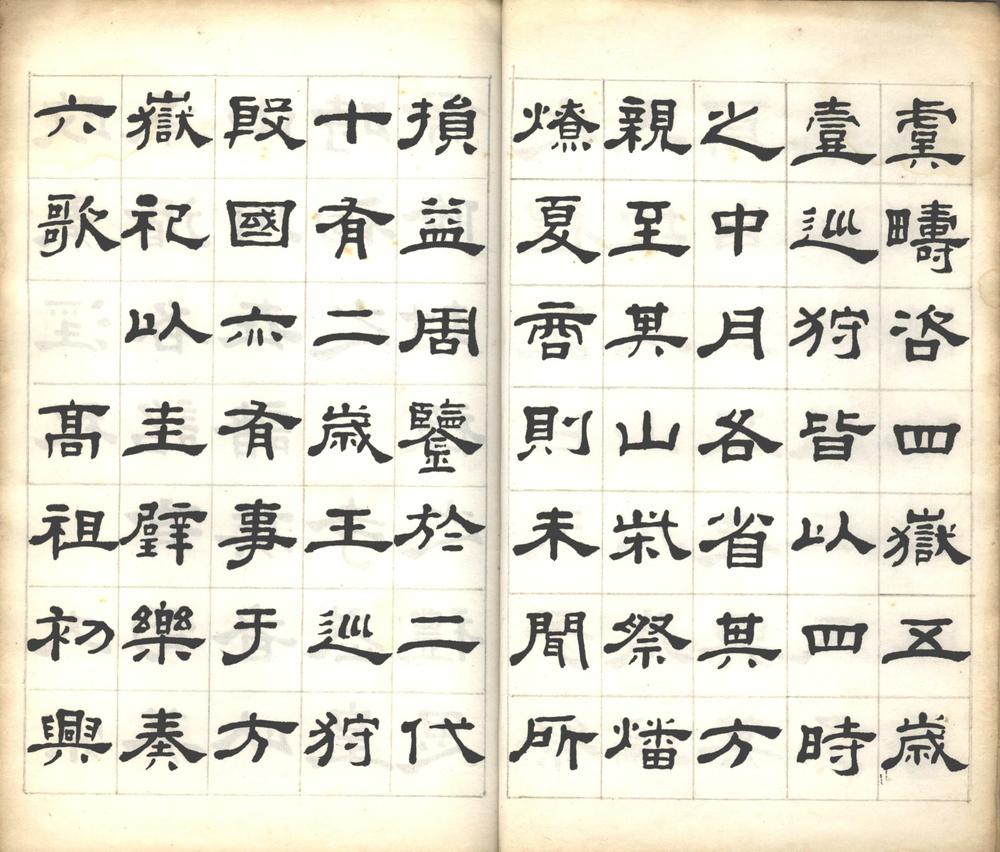 虞疇咨四嶽五歲
壹巡狩皆以四時
之中月各省其方
親至其山柴祭燔
燎夏商則未聞所
損益周鑒於二代
十有二歲王巡狩
殷國亦有事于方
嶽祀以圭璧樂奏
六歌 高祖初興